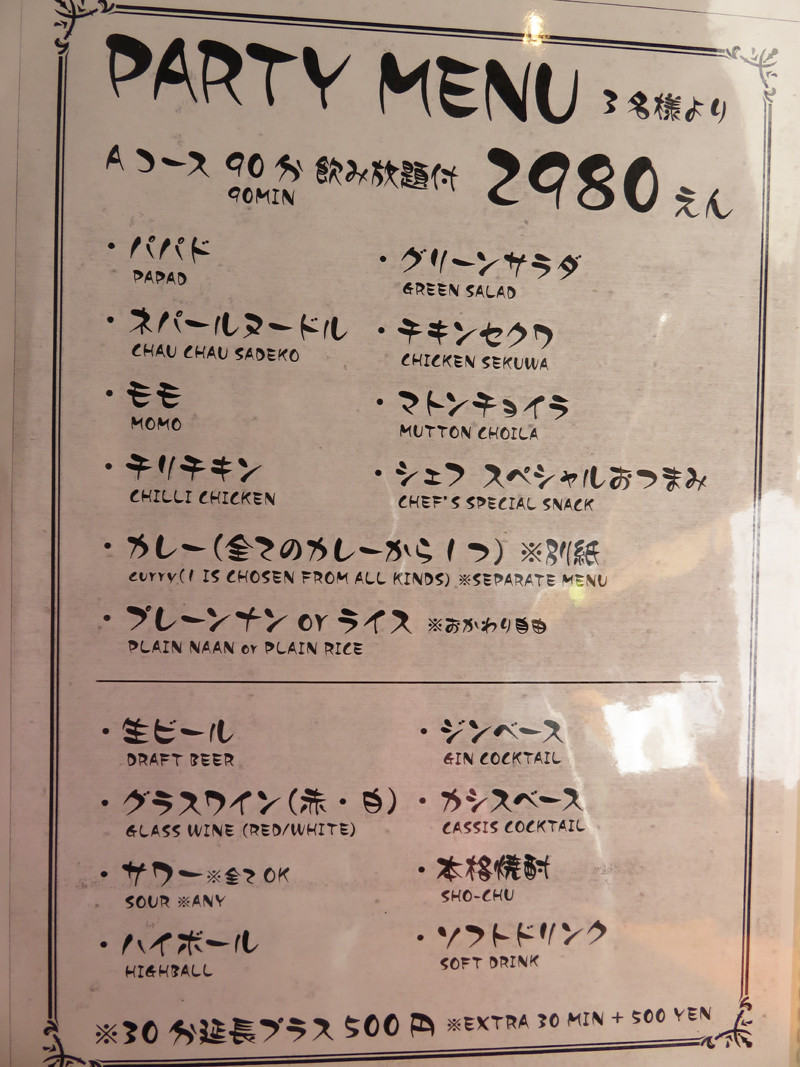 PARTY MENU 3名様より
Aコース 90分 飲み放題付 2980えん
90MIN
・パパド
PAPAD
・グリーンサラダ
GREEN SALAD
・ネパールヌードル
CHAU CHAU SADEKO
・チキンセクワ
CHICKEN SEKUWA
・モモ
MOMO
・マトンチョイラ
MUTTON CHOILA
・チリチキン
CHILLI CHICKEN
・シェフ スペシャルおつまみ
CHEF'S SPECIAL SNACK
・カレー(全てのカレーから1つ) ※別紙
curry(1 IS CHOSEN FROM ALL KINDS) ※SEPARATE MENU
・プレーンナン or ライス ※おかわり自由
PLAIN NAAN or PLAIN RICE
・生ビール
DRAFT BEER
・ジンベース
GIN COCKTAIL
・グラスワイン(赤・白)
GLASS WINE (RED/WHITE)
・カシスベース
CASSIS COCKTAIL
・サワー※全てOK
SOUR ※ANY
・本格焼酎
SHO-CHU
・ハイボール
HIGHBALL
・ソフトドリンク
SOFT DRINK
※30分延長プラス500円 ※EXTRA 30 MIN + 500 YEN